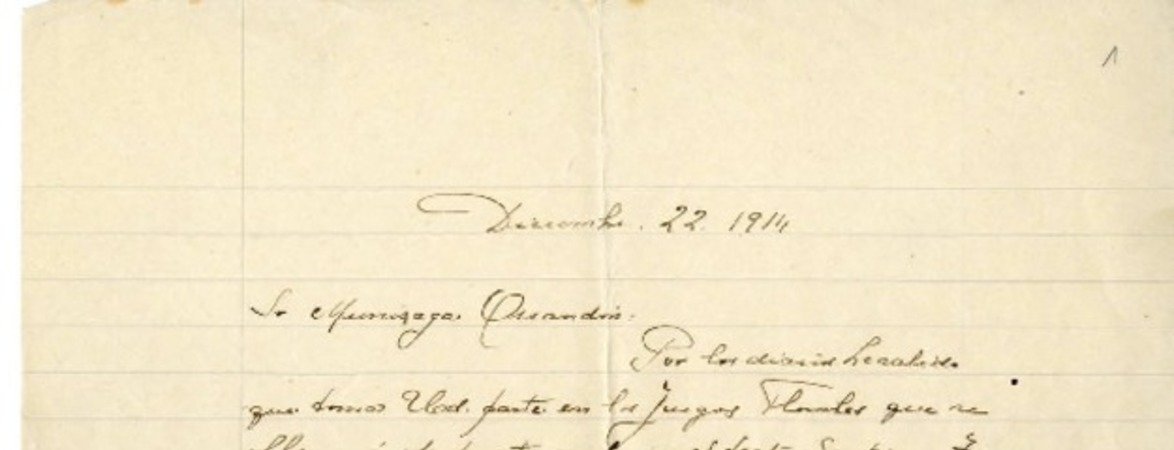 1
Diciembre. 22. 1914
Sr Munizaga Ossandón:
Por los diarios he sabido
que tomas Ud. parte en los Juegos Florales que se